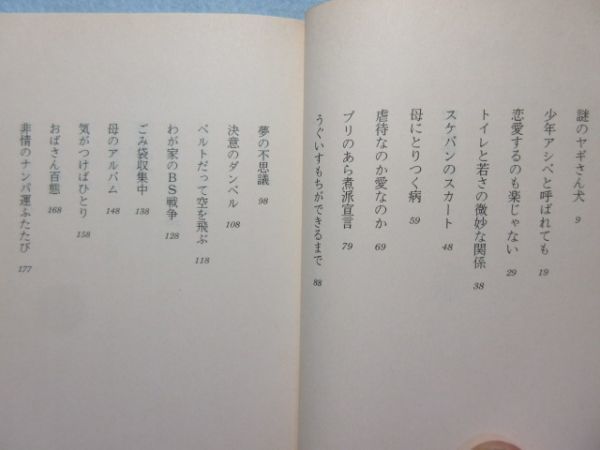 謎のヤギさん犬 9
少年アシベと呼ばれても 19
恋愛するのも楽じゃない 29
トイレと若さの微妙な関係 38
スケバンのスカート 48
母にとりつく病 59
虐待なのか愛なのか 69
ブリのあら煮派宣言 79
うぐいすもちができるまで 88
夢の不思議 98
決意のダンベル 108
ベルトだって空を飛ぶ 118
わが家のBS戦争 128
ごみ袋収集中 138
母のアルバム 148
気がつけばひとり 158
おばさん百態 168
非情のナンパ運ふたたび 177